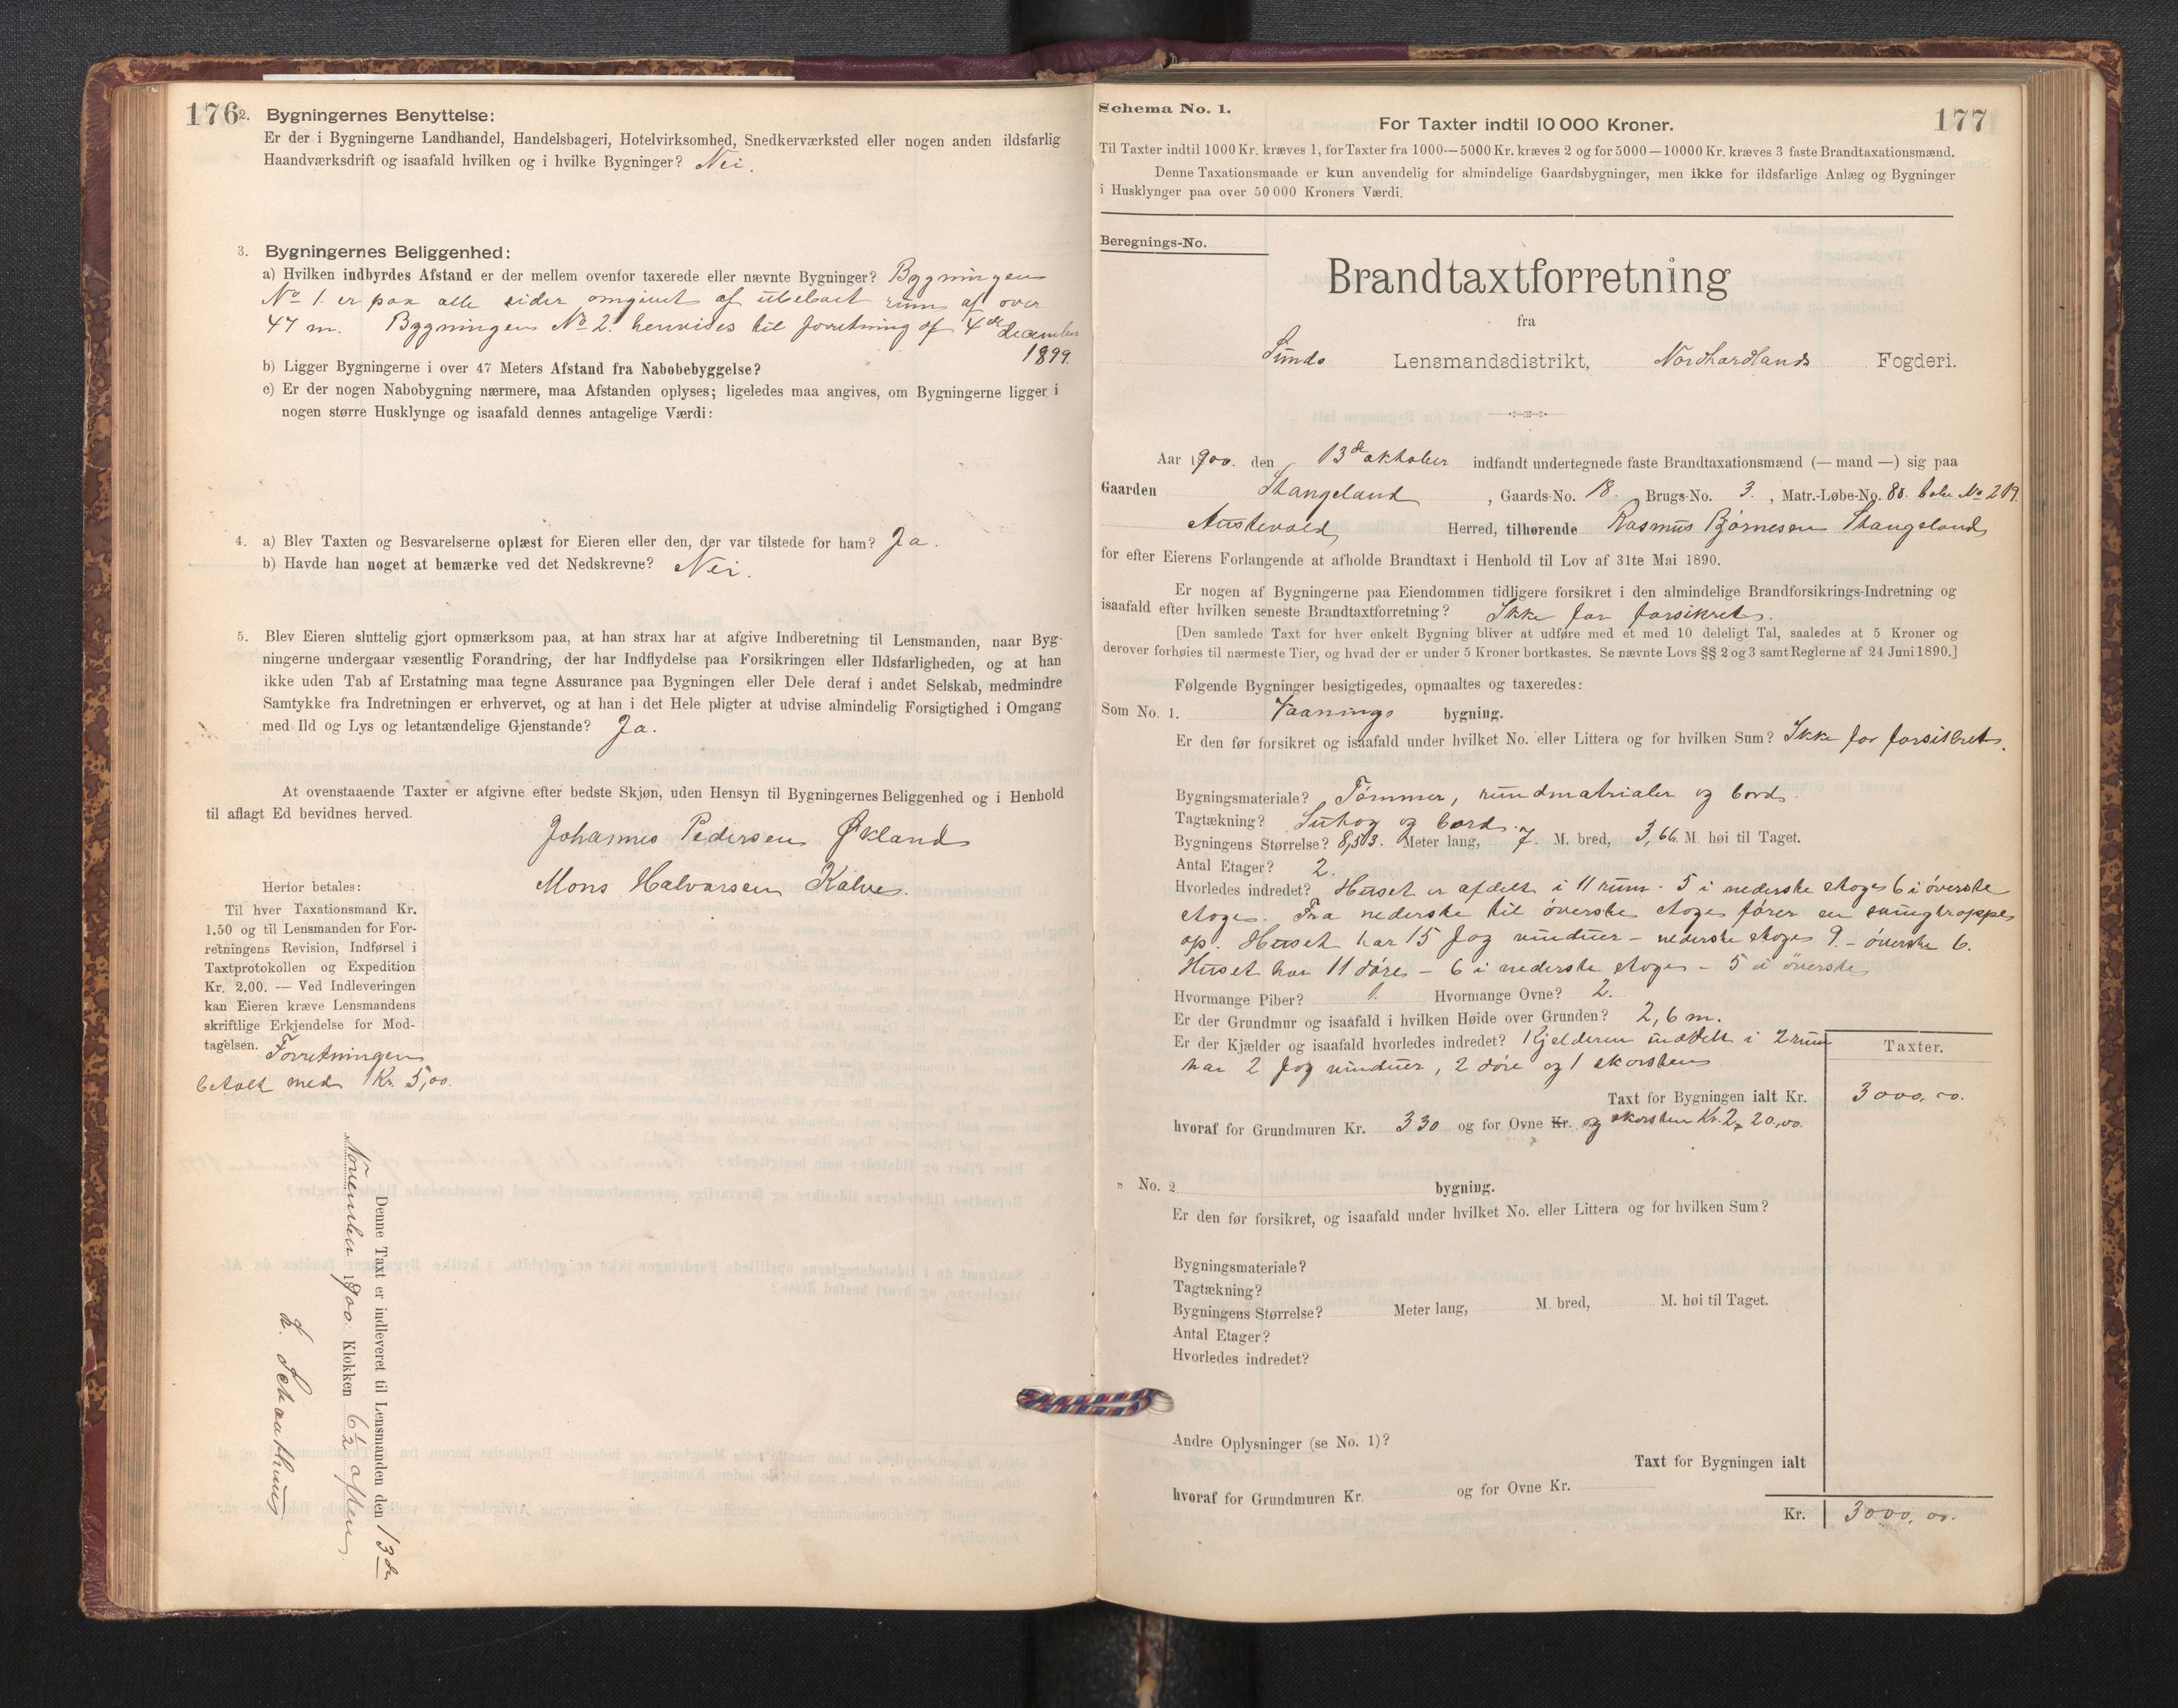 176
2. Bygningernes Benyttelse:
Er der i Bygningerne Landhandel, Handelsbageri, Hotelvirksomhed, Snedkerværksted eller nogen anden ildsfarlig
Haandværksdrift og isaafald hvilken og i hvilke Bygninger? Nei.
3. Bygningernes Beliggenhed:
a) Hvilken indbyrdes Afstand er der mellem ovenfor taxerede eller nævnte Bygninger? Bygningen
No 1. er paa alle sider omgivet af ubebaet rum af over
47 m. Bygningen No 2. henvises til forretning af 4de december
1899.
b) Ligger Bygningerne i over 47 Meters Afstand fra Nabobebyggelse?
c) Er der nogen Nabobygning nærmere, maa Afstanden oplyses; ligeledes maa angives, om Bygningerne ligger i
nogen større Husklynge og isaafald dennes antagelige Værdi:
4. a) Blev Taxten og Besvarelserne oplæst for Eieren eller den, der var tilstede for ham? Ja.
b) Havde han noget at bemærke ved det Nedskrevne? Nei.
5. Blev Eieren sluttelig gjort opmærksom paa, at han strax har at afgive Indberetning til Lensmanden, naar Byg-
ningerne undergaar væsentlig Forandring, der har Indflydelse paa Forsikringen eller Ildsfarligheden, og at han
ikke uden Tab af Erstatning maa tegne Assurance paa Bygningen eller Dele deraf i andet Selskab, medmindre
Samtykke fra Indretningen er erhvervet, og at han i det Hele pligter at udvise almindelig Forsigtighed i Omgang
med Ild og Lys og letantændelige Gjenstande? Ja.
At ovenstaaende Taxter er afgivne efter bedste Skjøn, uden Hensyn til Bygningernes Beliggenhed og i Henhold
til aflagt Ed bevidnes herved.
Johannes Pedersen Økland
Mons Halvorsen Kalve.
Herfor betales:
Til hver Taxationsmand Kr.
1.50 og til Lensmanden for For-
retningens Revision, Indførsel i
Taxtprotokollen og Expedition
Kr. 2.00. — Ved Indleveringen
kan Eieren kræve Lensmandens
skriftlige Erkjendelse for Mod-
tagelsen. Forretningen
betalt med Kr. 5,00.
Denne Taxt er indleveret til Lensmanden den 13de
November 1900 Klokken 6 1/2 aften
177
Schema No. 1.
For Taxter indtil 10 000 Kroner.
Til Taxter indtil 1000 Kr. kræves 1, for Taxter fra 1000—5000 Kr. kræves 2 og for 5000—10000 Kr. kræves 3 faste Brandtaxationsmænd.
Denne Taxationsmaade er kun anvendelig for almindelige Gaardsbygninger, men ikke for ildsfarlige Anlæg og Bygninger
i Husklynger paa over 50 000 Kroners Værdi.
Beregnings-No.
Brandtaxtforretning
fra
Sunds Lensmandsdistrikt, Nordhordlands Fogderi.
Aar 1900. den 13de oktober indfandt undertegnede faste Brandtaxationsmænd (— mand —) sig paa
Gaarden Stangeland, Gaards-No. 18. Brugs-No. 3., Matr.-Løbe-No. 88. No 219.
Austevold Herred, tilhørende Rasmus Bjørnesen Stangeland
for efter Eierens Forlangende at afholde Brandtaxt i Henhold til Lov af 31te Mai 1890.
Er nogen af Bygningerne paa Eiendommen tidligere forsikret i den almindelige Brandforsikrings-Indretning og
isaafald efter hvilken seneste Brandtaxtforretning? Ikke før forsikret.
[Den samlede Taxt for hver enkelt Bygning bliver at udføre med et med 10 deleligt Tal, saaledes at 5 Kroner og
derover forhøies til nærmeste Tier, og hvad der er under 5 Kroner bortkastes. Se nævnte Lovs §§ 2 og 3 samt Reglerne af 24 Juni 1890.]
Følgende Bygninger besigtigedes, opmaaltes og taxeredes:
Som No. 1. Vaanings bygning.
Er den før forsikret og isaafald under hvilket No. eller Littera og for hvilken Sum? Ikke før forsikret.
Bygningsmateriale? Tømmer, rundmatrialer og bord.
Tagtækning? Suhog og bord.
Bygningens Størrelse? 8,53. Meter lang, 7. M. bred, 3,66. M. høi til Taget.
Antal Etager? 2.
Hvorledes indredet? Huset er afdelt i 11 rum - 5 i nederste etage 6 i øverste
etage. Fra nederste til øverste etage fører en svingtrappe
op. Huset har 15 fag vinduer - nederste etage 9 - øverste 6.
Huset har 11 døre - 6 i nederste etage - 5 i øverste
Hvormange Piber? 1. Hvormange Ovne? 2.
Er der Grundmur og isaafald i hvilken Høide over Grunden? 2,6 m.
Er der Kjælder og isaafald hvorledes indredet? Kjelderen inddelt i 2 rum
har 2 fag vinduer, 2 døre og 1 skorsten
Taxter.
Taxt for Bygningen ialt Kr. 3000,00.
hvoraf for Grundmuren Kr. 330 og for Ovne Kr. og skorsten Kr. 220,00.
" No. 2 bygning.
Er den før forsikret, og isaafald under hvilket No. eller Littera og for hvilken Sum?
Bygningsmateriale?
Tagtækning?
Bygningens Størrelse? Meter lang, M. bred, M. høi til Taget.
Antal Etager?
Hvorledes indredet?
Andre Oplysninger (se No. 1)?
Taxt for Bygningen ialt
hvoraf for Grundmuren Kr. og for Ovne Kr.
Kr. 3000,00.